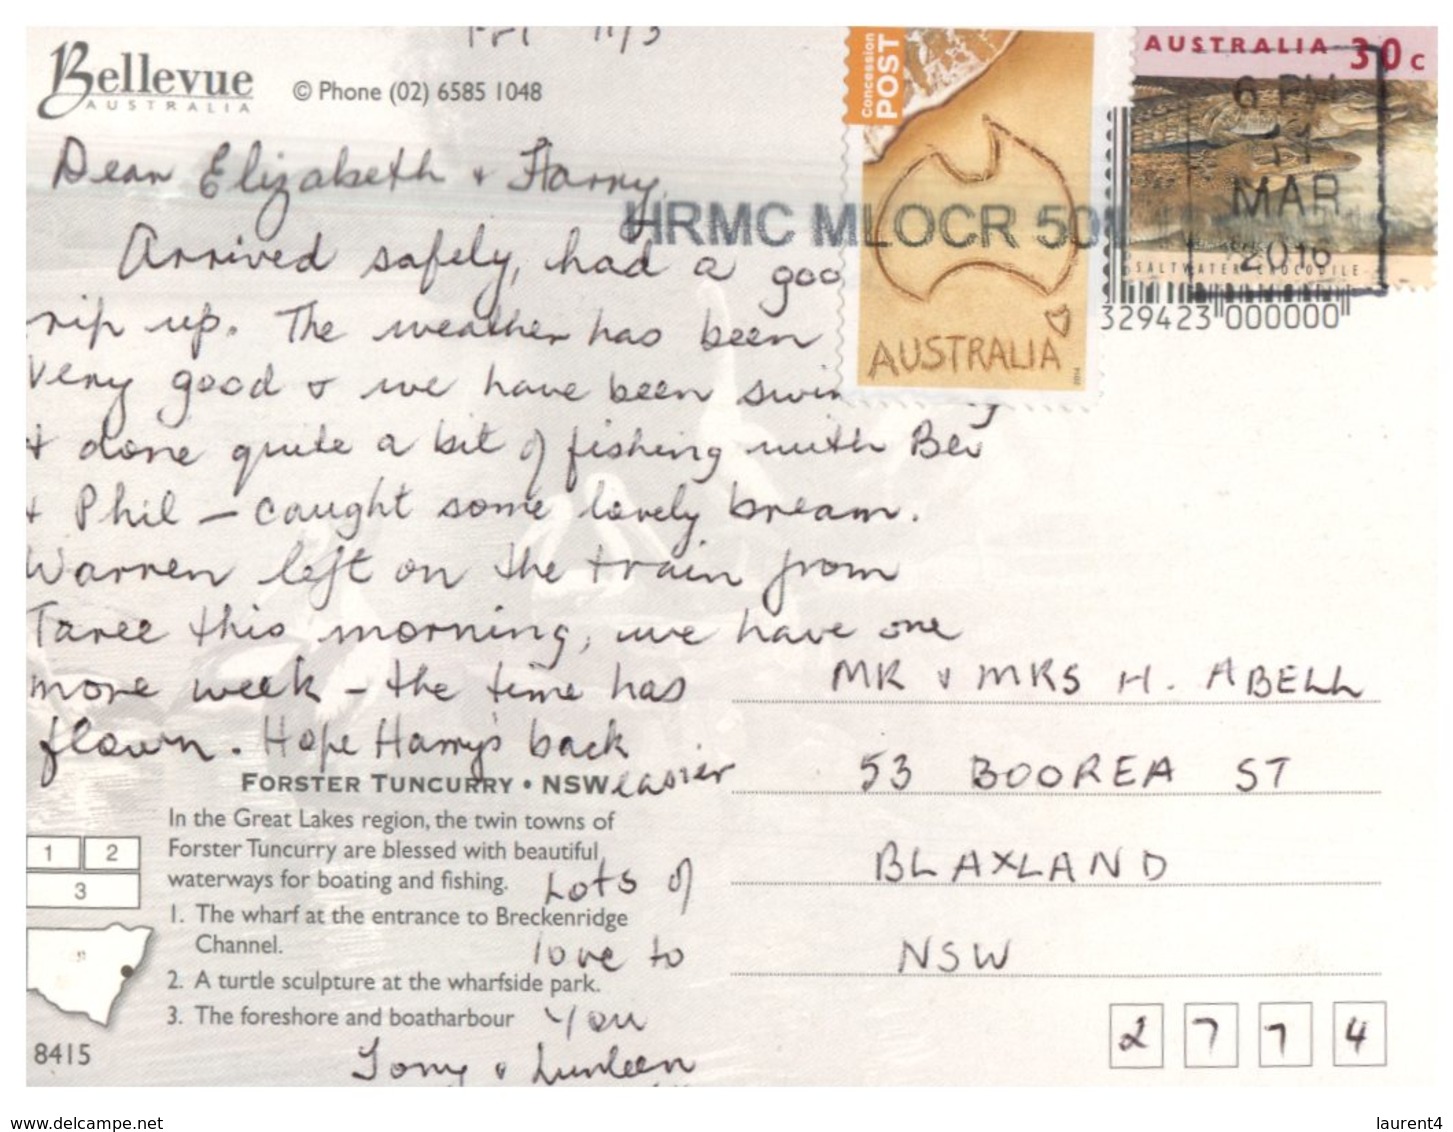 Fri 11/3
Bellevue
AUSTRALIA
© Phone (02) 6585 1048
Dear Elizabeth & Harry,
Arrived safely, had a goo
rip up. The weather has been
very good & we have been swim
& done quite a bit of fishing with Bev
& Phil – caught some lovely bream.
Warren left on the train from
Taree this morning, we have one
more week – the time has
flown. Hope Harry's back
easier
Lots of
love to
you
Tony &
FORSTER TUNCURRY • NSW
In the Great Lakes region, the twin towns of
Forster Tuncurry are blessed with beautiful
waterways for boating and fishing.
1. The wharf at the entrance to Breckenridge
Channel.
2. A turtle sculpture at the wharfside park.
3. The foreshore and boatharbour
1 2
3
8415
Concession
POST
AUSTRALIA
AUSTRALIA 30c
SALTWATER CROCODILE
HRMC MLOCR 50
6 PM
11
MAR
2016
329423 000000
MR & MRS H. ABELL
53 BOOREA ST
BLAXLAND
NSW
2 7 7 4
www.delcampe.net
laurent4